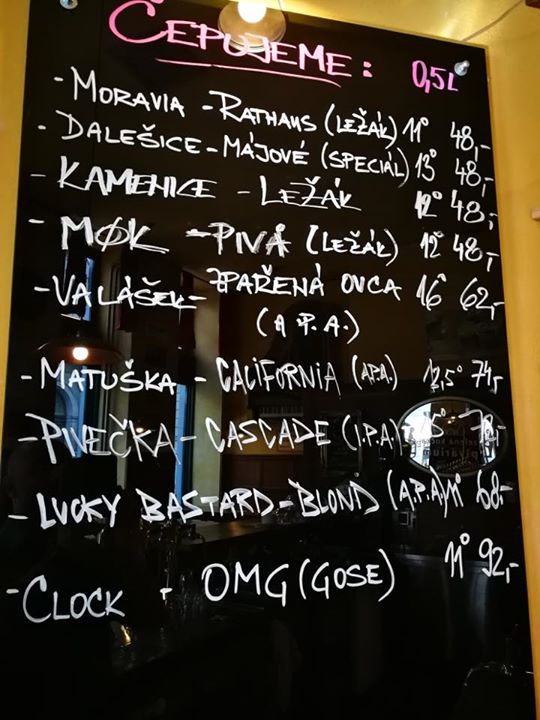 ČEPUJEME: 0,5L
- MORAVIA - RATHAUS (LEŽÁK) 11° 48,-
- DALEŠICE - MÁJOVÉ (SPECIÁL) 13° 48,-
- KAMENICE - LEŽÁK 12° 48,-
- MØK - PIVÅ (LEŽÁK) 12° 48,-
- VALÁŠEK - ZPAŘENÁ OVCA 16° 62,-
(A.P.A.)
- MATUŠKA - CALIFORNIA (APA) 12,5° 74,-
- PIVEČKA - CASCADE (I.P.A.) 78,-
- LUCKY BASTARD - BLOND (A.P.A) 11° 68,-
- CLOCK - OMG (GOSE) 11° 92,-